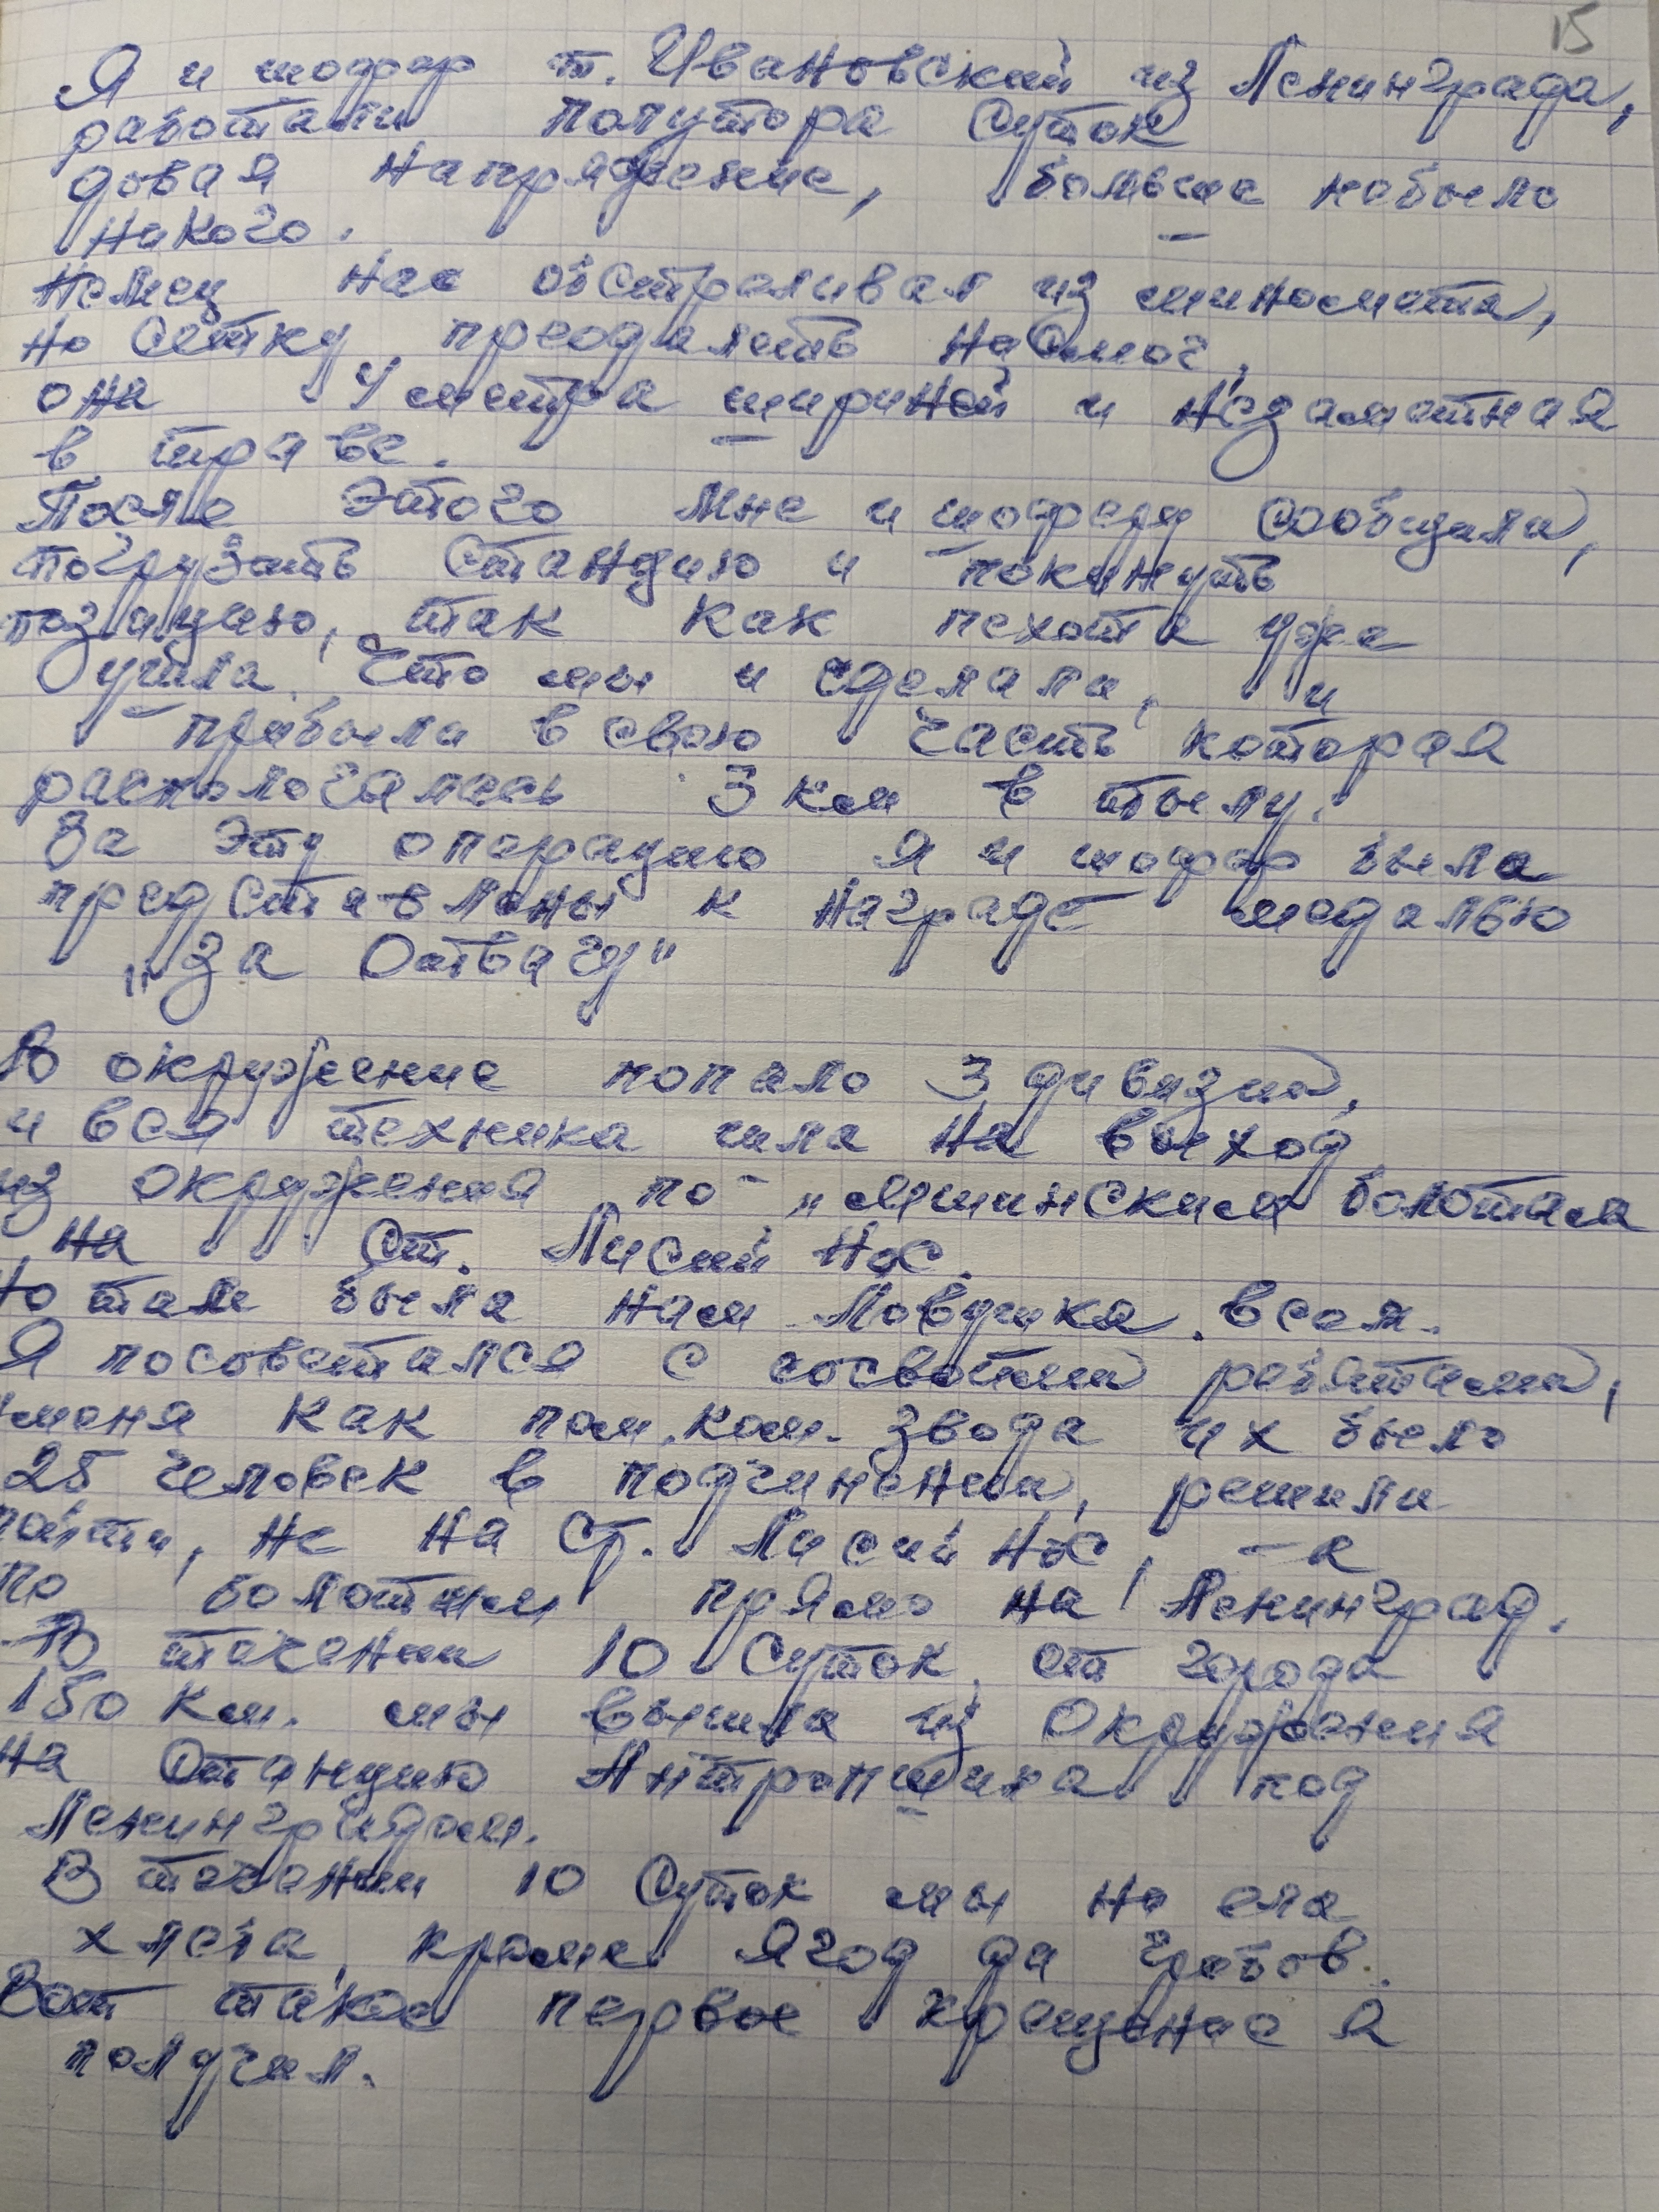 15
Я и шофер т. Ивановский из Ленинграда,
работали полутора суток
довая напряжение, больше небыло
никого.
Немец нас обстреливал из миномета,
но сетку преодалеть несмог,
она 4 метра шириной и незаметная
в траве.
После этого мне и шоферу сообщили,
погрузить станцию и покинуть
позицию, так как пехота уже
ушла. Что мы и сделали, и
прибыли в свою часть которая
распологалась 3 км в тылу.
За эту операцию я и шофер были
представлены к награде медалью
„За Отвагу"
В окружение попало 3 дивизии,
и вся техника шла на выход
из окружения по „мшинским болотам
на ст. Лисий Нос.
Но там была нам ловушка. всем.
Я посоветался с ребятами,
меня как пом. ком. звода их было
25 человек в подчинении, решили
пойти, не на ст. Лисий Нос, – а
по болотам прямо на Ленинград.
В течении 10 суток, от города
150 км. мы вышли из окружения
на станцию Антропшина под
Ленинградом.
В течении 10 суток мы не ели
хлеба, кроме ягод да грибов.
Вот такое первое крещение я
получил.